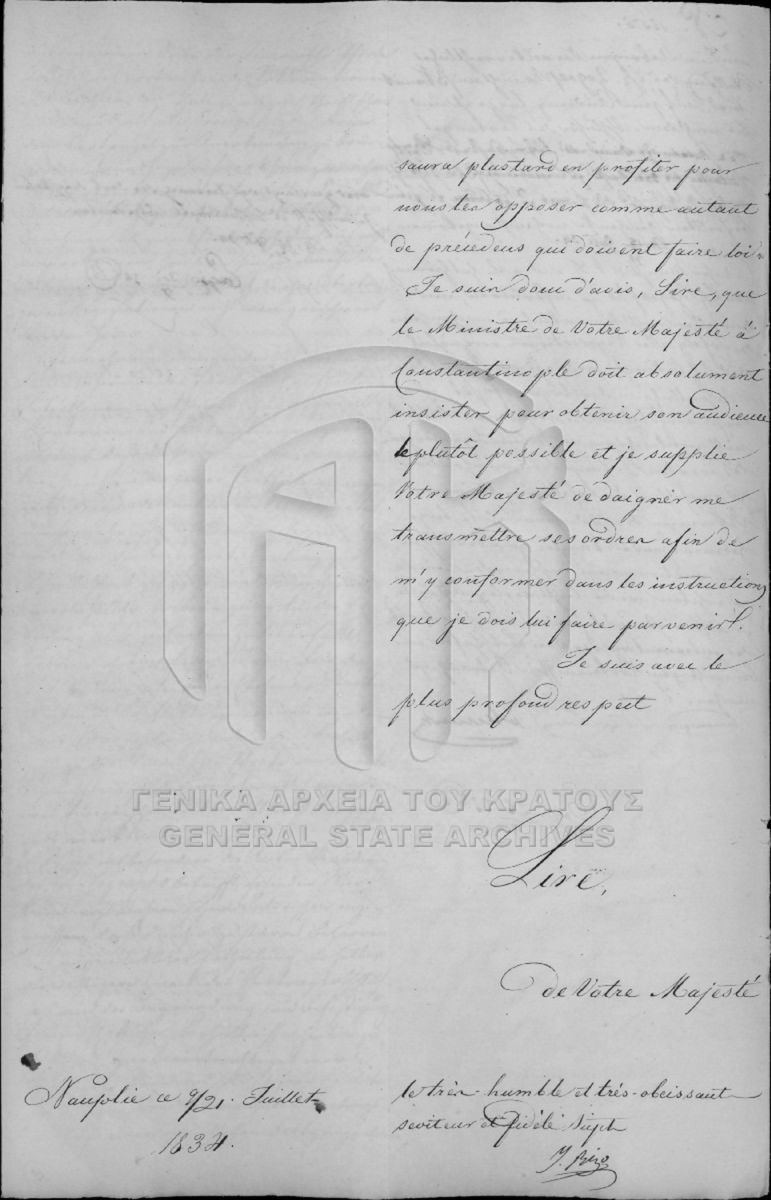 saura plustard en profiter pour
nous les opposer comme autant
de précédens qui doivent faire loi.
Je suis donc d'avis, Sire, que
le Ministre de Votre Majesté à
Constantinople doit absolument
insister pour obtenir son audience
le plutôt possible et je supplie
Votre Majesté de daigner me
transmettre ses ordres afin de
m'y conformer dans les instructions
que je dois lui faire parvenir.
Je suis avec le
plus profond respect
ΓΕΝΙΚΑ ΑΡΧΕΙΑ ΤΟΥ ΚΡΑΤΟΥΣ
GENERAL STATE ARCHIVES
Sire,
de Votre Majesté
le très-humble et très-obeissant
seviteur et fidéle Sujet
J. Rizo
Nauplie ce 9/21. Juillet
1834.